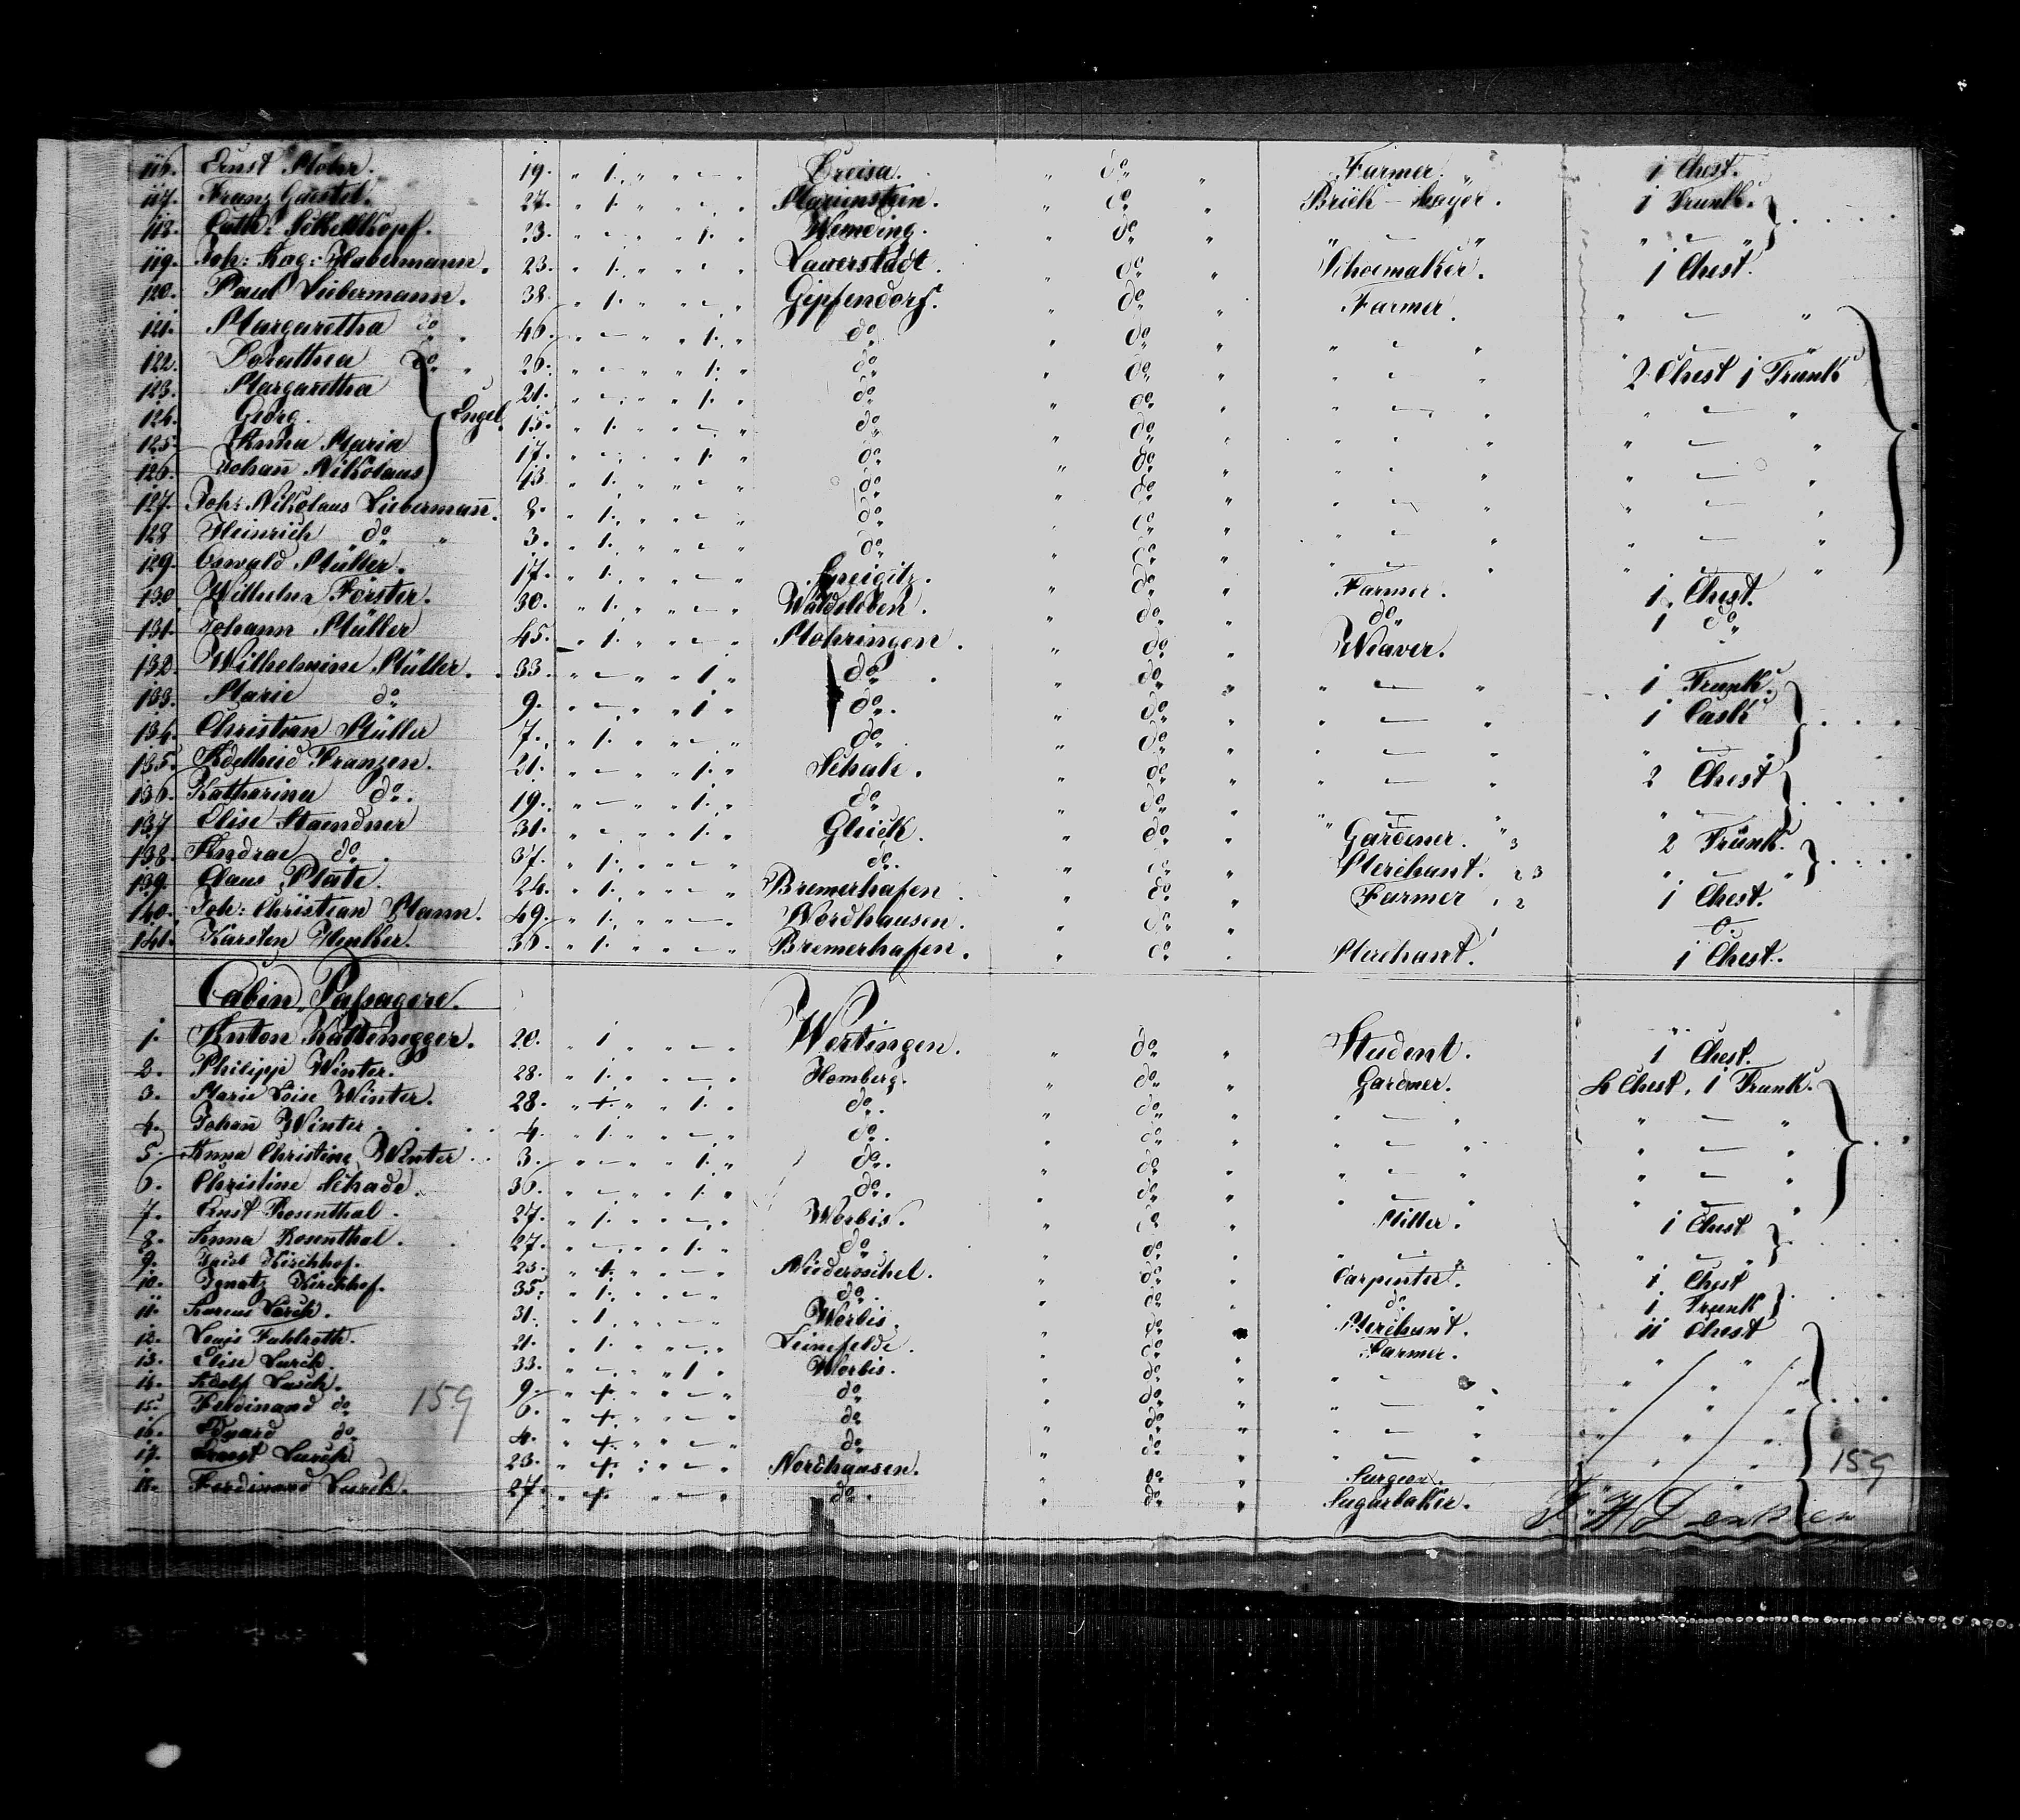 116. Ernst Mohr. 19. " 1. " " — " Greisa. " do " Farmer. " 1 Chest.
117. Franz Gaustel. 27. " 1. " " — " Marienstein. " do " Brick-layer. 1 Trunk.
118. Cath: Schellkopf. 23. " — " 1. " Wemding. " do " " — " " — "
119. Joh: Kog: Habermann. 23. " 1. " " — " Lauerstadt. " do " Schoemaker. 1 Chest.
120. Paul Liebermann. 38. " 1. " " — " Gipfendorf. " do " Farmer. " — "
121. Margaretha do " 46. " — " " 1. " do " do " " — " " — "
122. Dorathea do " 26. " — " " 1. " do " do " " — " 2 Chest 1 Trunk
123. Margaretha 21. " — " " 1. " do " do " " — " " — "
124. Georg Engel. 15. " 1. " " — " do " do " " — " " — "
125. Anna Maria 17. " — " " 1. " do " do " " — " " — "
126. Johan Nikolaus 43. " 1. " " — " do " do " " — " " — "
127. Joh: Nikolaus Lieberman. 8. " 1. " " — " do " do " " — " " — "
128 Heinrich do " 3. " 1. " " — " do " do " " — " " — "
129. Oswald Müller. 17. " 1. " " — " Greigitz. " do " Farmer. 1. Chest.
130. Wilhelm Förster. 30. " 1. " " — " Waldsleben. " do " do 1 do "
131. Johann Müller 45. " 1. " " — " Mohringen. " do " Weaver.
132. Wilhelmine Müller. 33. " — " " 1 " do " do " " — " 1 Trunk.
133. Marie do 9. " — " " 1 " do. " do " " — " 1 Cask
134. Christian Müller 7. " 1. " " — " do " do " " — " " — "
135. Adelheid Franzen. 21. " — " " 1. " Schale. " do " " — " 2 Chest
136. Katharina do. 19. " — " " 1. " do " do " " — " " — "
137 Elise Staendner 31. " — " " 1. " Gluick. " do " Gardener. " 3 2 Trunk.
138. Andrae do. 37. " 1. " " — " do. " do " Merchant. 23 " — "
139. Claus Plate. 24. " 1. " " — " Bremerhafen. " do " Farmer 12 1 Chest.
140. Joh: Christian Mann. 49. " 1. " " — " Nordhausen. " do " 0.
141. Karsten Henker. 36. " 1. " " — " Bremerhafen. " do . Merchant. 1 Chest.
Cabin Passagere.
1. Anton Kattenegger. 20. " 1 " " — Wertingen. " do " Student. 1 Chest.
2. Philipp Winter. 28. " 1. " " — " Homberg. " do " Gardner. 4 Chest. 1 Trunk.
3. Marie Loise Winter. 28. " " " 1. " do. " do " " — " " — "
4. Johan Winter. 4. " 1. " " — " do. " do " " — " " — "
5. Anna Christine Winter 3. " — " " 1. " do. " do " " — " " — "
6. Christine Schade. 36. " — " " 1. " do. " do " " — " " — "
7. Ernst Rosenthal. 27. " 1. " " — " Worbis. " do " Miller. 1 Chest
8. Anna Rosenthal. 27. " — " " 1. " do. " do " " — " " — "
9. Jacob Kirchhof. 23. " 1. " " — " Niederoschel. " do " Carpenter. 1 Chest
10. Ignatz Kirchhof. 35. " 1. " " — " do. " do " do 1 Trunk
11. 31. " 1 " " — " Worbis. " do " Merchant. 11 Chest
12. Louis Fahlroth. 21. " 1. " " — " Leinefelde. " do " Farmer. " "
13. Elise Lurch. 33. " — " " 1 " Worbis. " do " " — " "
14. Adolf Lurch. 9. " 1. " " — " do " do " " — " "
15. Ferdinand do 159 6. " 1. " " — " do " do " " — " "
16. Eduard do 4. " 1. " " — " do " do " " — " "
17. Lurch 23. " 1. " " — " Nordhausen. " do " Surgeon. 159
18. Ferdinand Lurch. 27. " 1. " " — " do. " do " Sugarbaker.